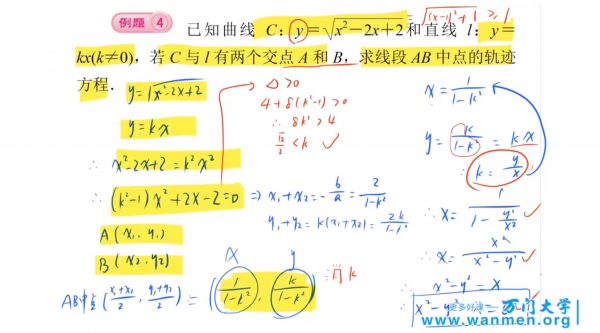 例题 4 已知曲线 C：y=√(x²-2x+2) 和直线 l：y=
=√((x-1)²+1) ≥ 1
kx(k≠0)，若 C 与 l 有两个交点 A 和 B，求线段 AB 中点的轨迹
方程.
y=√(x²-2x+2)
y=kx
∴ x²-2x+2=k²x²
∴ (k²-1)x²+2x-2=0
A(x₁, y₁)
B(x₂, y₂)
AB中点(x₁+x₂/2, y₁+y₂/2) = (1/1-k², k/1-k²)
x y
消k
Δ>0
4+8(k²-1)>0
∴ 8k²>4
√2/2<k ✓
⇒ x₁+x₂=-b/a=2/1-k²
y₁+y₂=k(x₁+x₂)=2k/1-k²
x=1/1-k²
y=k/1-k²=kx
∴ k=y/x
∴ x=1/(1-y²/x²) ✓
∴ x=x²/x²-y² ✓
∴ x²-y²=x
∴ x²-y²
万门大学
www.wanmen.org